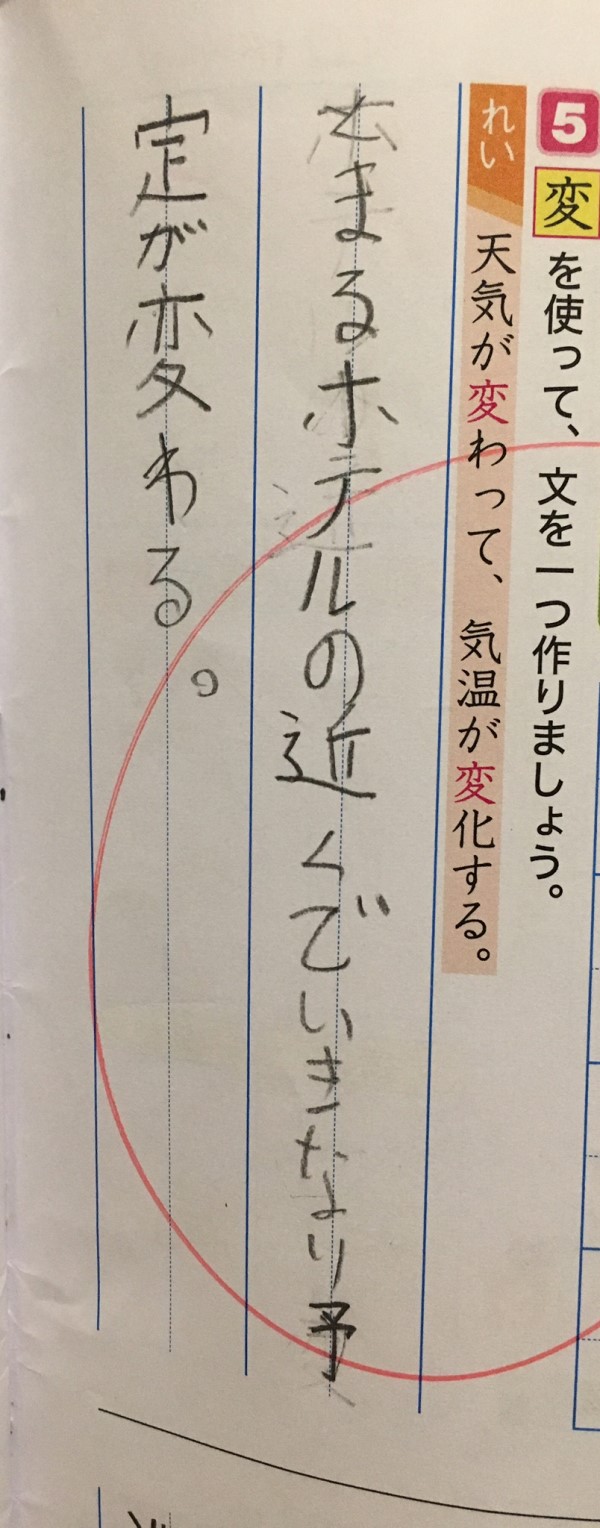 5 変を使って、文を一つ作りましょう。
れい 天気が変わって、気温が変化する。
とまるホテルの近くでいきなり予
定が変わる。